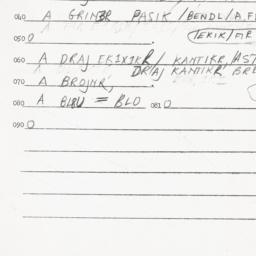 040 A GRINBR PASIK/BENDL/A.F
050 0 (ERIK/MR
060 A DRAJFKIXIKR/KANTIKR,/AST
DR/AJ KANTIKR BRE
070 A BROJNR,
080 A BLBU = BLO 081 0
090 0